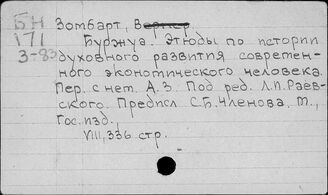 БН Зомбарт, Вернер
171 Буржуа. Этюды по истории
3-83 духовного развития современ-
ного экономического человека.
Пер. с нем. А.З. Под ред. Л.П. Раев-
ского. Предисл. С.Б. Членова. М.,
Гос. изд.,
VIII, 336 стр.